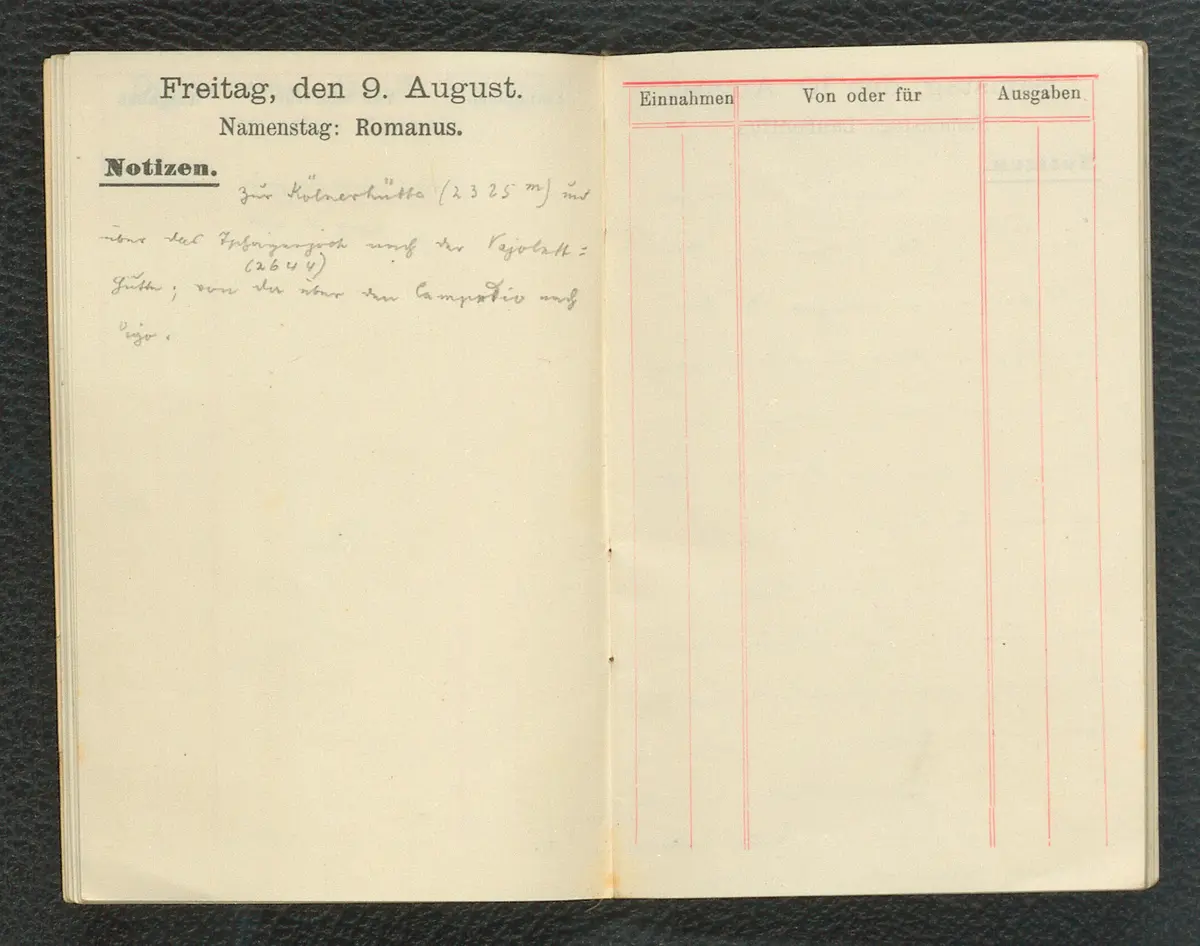 Freitag, den 9. August.
Namenstag: Romanus.
Notizen.
Zur Kölnerhütte (2325 m) und
über das Tschagerjoch nach der Vajolett=
(2644)
Hütte; von da über den nach
Vigo.
Einnahmen
Von oder für
Ausgaben